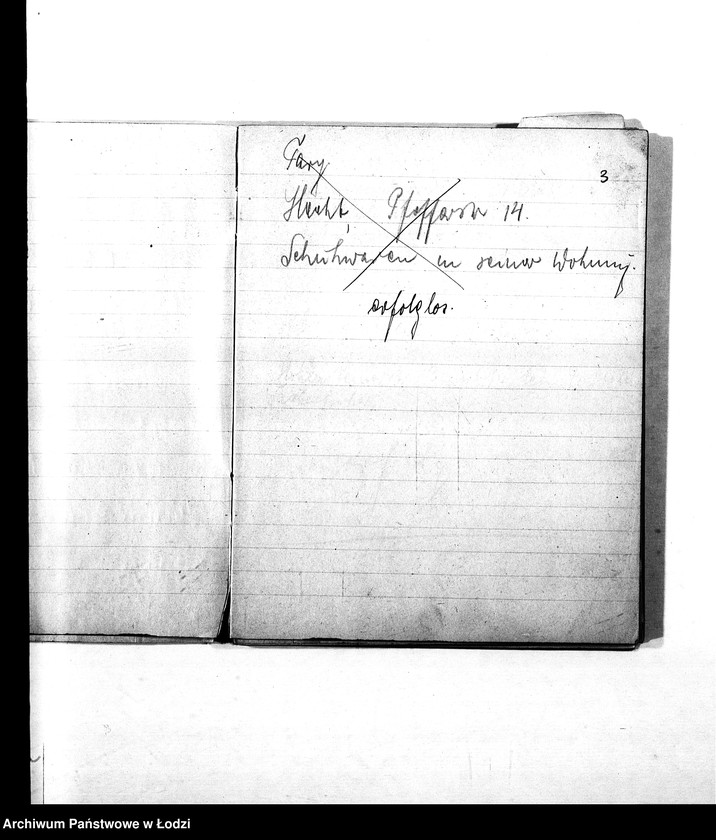 3
Hecht, Pfefferstr 14.
Schuhwaren in seiner Wohnung.
erfolglos.
Archiwum Państwowe w Łodzi